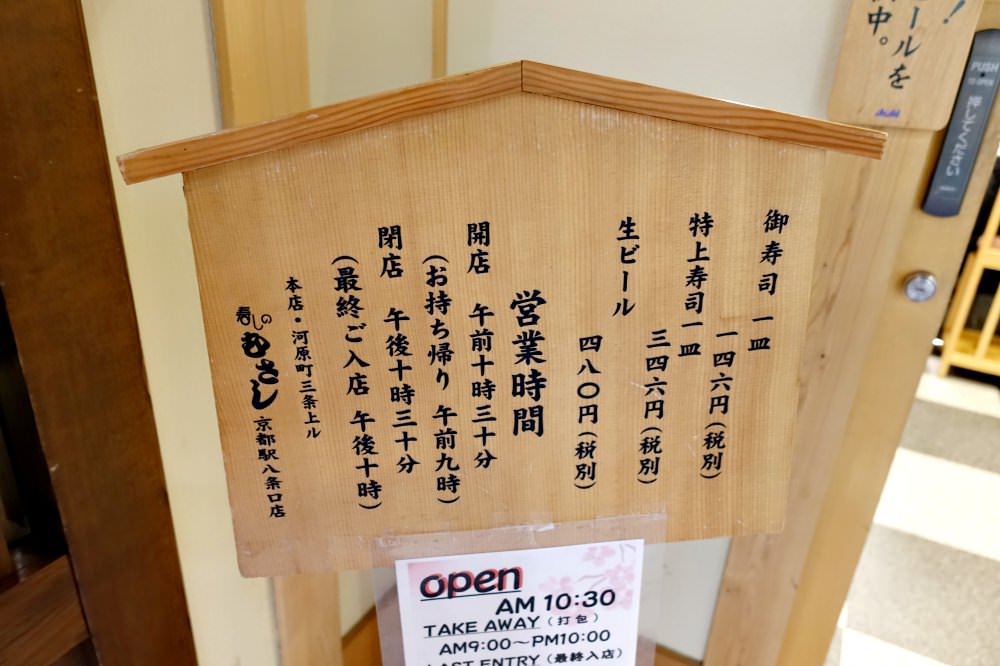 御寿司 一皿
一四六円(税別)
特上寿司一皿
三四六円(税別)
生ビール
四八〇円(税別)
営業時間
開店 午前十時三十分
(お持ち帰り 午前九時)
閉店 午後十時三十分
(最終ご入店 午後十時)
本店・河原町三条上ル
寿しの
むさし
京都駅八条口店
open
AM 10:30
TAKE AWAY (打包)
AM9:00~PM10:00
LAST ENTRY (最終入店)
!
ビールを
中。
Asahi
PUSH
TO OPEN
押してください